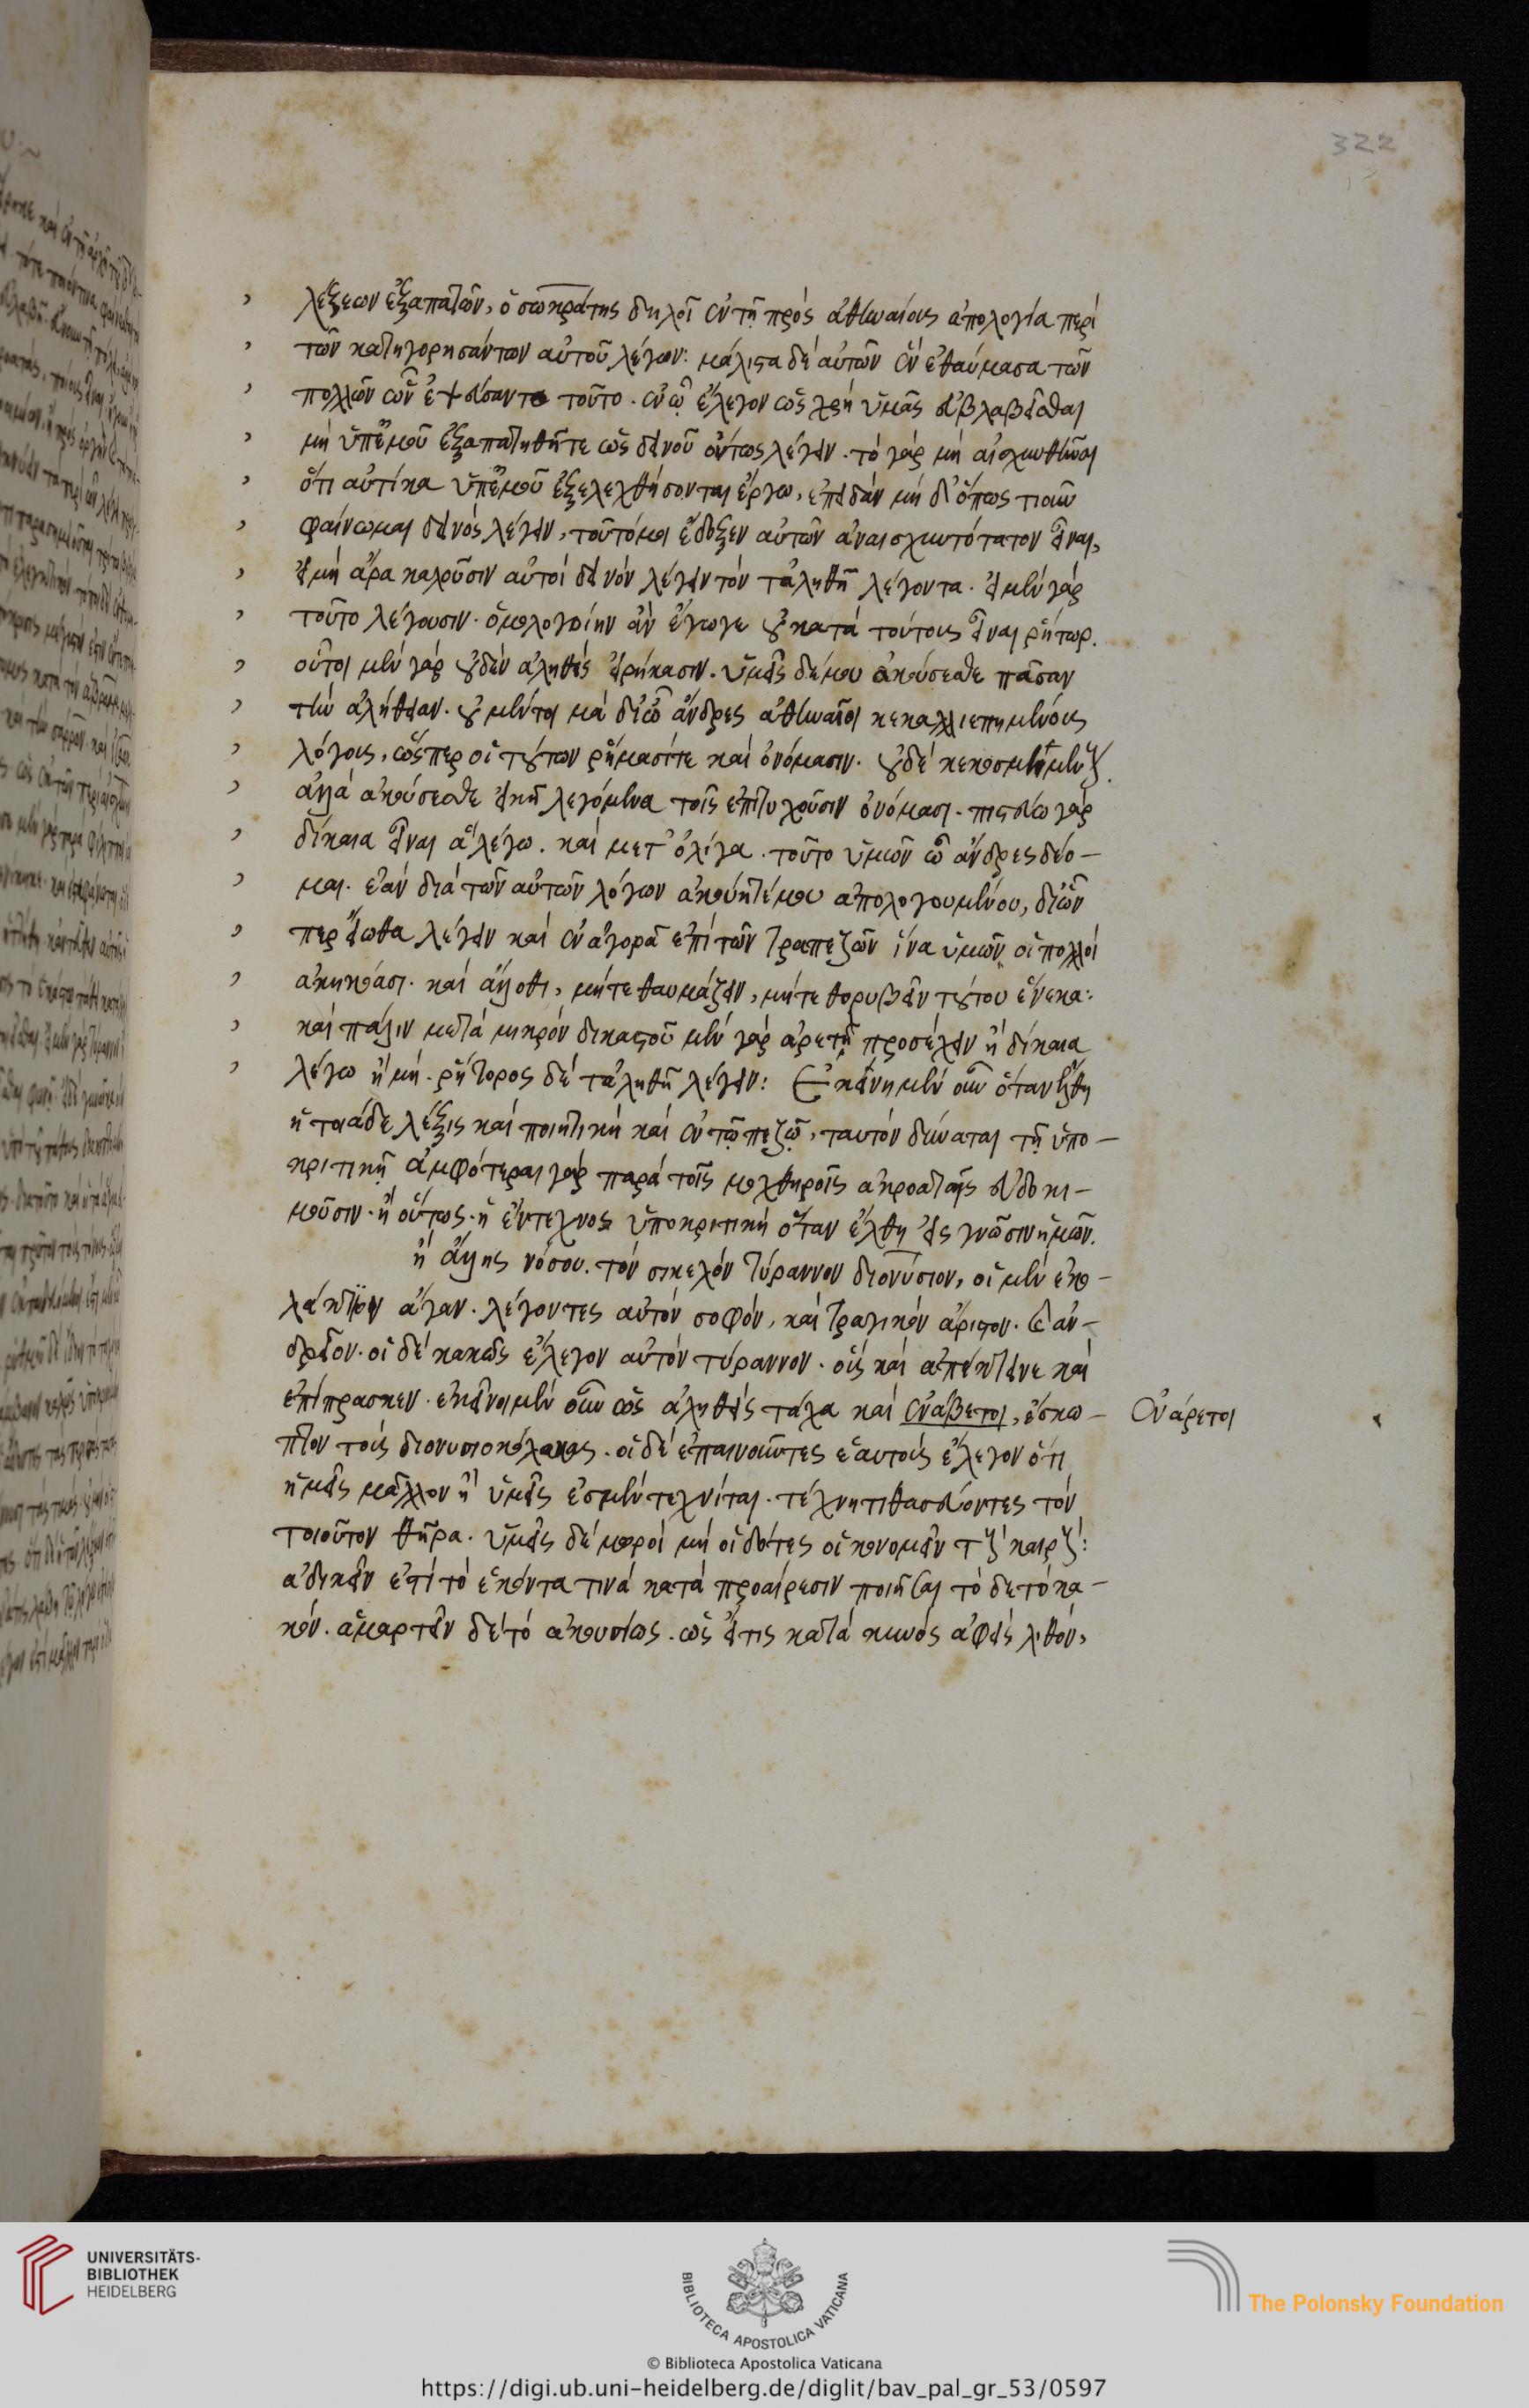 322
λέξεων ἐξαπατῶν, ὁ σωκράτης δηλοῖ ἐν τῇ πρὸς ἀθηναίους ἀπολογία περὶ
τῶν κατηγορησάντων αὐτοῦ λέγων: μάλιστα δὲ αὐτῶν ἓν ἐθαύμασα τῶν
πολλῶν ὧν ἐψεύσαντο τοῦτο. ἐν ᾧ ἔλεγον ὡς χρὴ ὑμᾶς εὐλαβεῖσθαι
μὴ ὑπ' ἐμοῦ ἐξαπατηθῆτε ὡς δεινοῦ ὄντως λέγειν. τὸ γὰρ μὴ αἰσχυνθῆναι
ὅτι αὐτίκα ὑπ' ἐμοῦ ἐξελεχθήσονται ἔργω, ἐπειδὰν μὴ δ' ὅπως τιοῦν
φαίνωμαι δεινὸς λέγειν, τοῦτό μοι ἔδοξεν αὐτῶν ἀναισχυντότατον εἶναι,
εἰ μὴ ἄρα καλοῦσιν αὐτοὶ δεινὸν λέγειν τὸν τἀληθῆ λέγοντα. εἰ μὲν γὰρ
τοῦτο λέγουσιν. ὁμολογοίην ἂν ἔγωγε οὐ κατὰ τούτους εἶναι ῥήτωρ.
οὗτοι μὲν γὰρ οὐδὲν ἀληθὲς εἰρήκασιν. ὑμεῖς δέ μου ἀκούσεσθε πᾶσαν
τὴν ἀλήθειαν. οὐ μέντοι μὰ δί' ὦ ἄνδρες ἀθηναῖοι κεκαλλιεπημένους
λόγους, ὥσπερ οἱ τούτων ῥήμασί τε καὶ ὀνόμασιν. οὐδὲ κεκοσμημένους.
ἀλλὰ ἀκούσεσθε εἰκῆ λεγόμενα τοῖς ἐπιτυχοῦσιν ὀνόμασι. πιστεύω γὰρ
δίκαια εἶναι ἃ λέγω. καὶ μετ' ὀλίγα. τοῦτο ὑμῶν ὦ ἄνδρες δέο-
μαι. ἐὰν διὰ τῶν αὐτῶν λόγων ἀκούητέ μου ἀπολογουμένου, δι' ὧν
περ εἴωθα λέγειν καὶ ἐν ἀγορᾶ ἐπὶ τῶν τραπεζῶν ἵνα ὑμῶν οἱ πολλοὶ
ἀκηκόασι. καὶ ἄλλοθι, μήτε θαυμάζειν, μήτε θορυβεῖν τούτου ἕνεκα:
καὶ πάλιν μετὰ μικρὸν δικαστοῦ μὲν γὰρ ἀρετὴ προσέχειν ἢ δίκαια
λέγω ἢ μή. ῥήτορος δὲ τἀληθῆ λέγειν: Ἐκείνη μὲν οὖν ὅταν ἔλθη
ἡ τοιάδε λέξις καὶ ποιητικὴ καὶ ἐν τῷ πεζῷ, ταυτὸν δύναται τῇ ὑπο-
κριτικῇ ἀμφότεραι γὰρ παρὰ τοῖς μοχθηροῖς ἀκροαταῖς εὐδοκι-
μοῦσιν. ἢ οὕτως. ἡ ἔντεχνος ὑποκριτικὴ ὅταν ἔλθη εἰς γνῶσιν ἡμῶν.
ἢ ἄλλης νόσου. τὸν σικελὸν τύραννον διονύσιον, οἱ μὲν ἐκο-
λάκευον ἄγαν. λέγοντες αὐτὸν σοφόν, καὶ τραγικὸν ἄριστον. καὶ ἀν-
δρεῖον. οἱ δὲ κακῶς ἔλεγον αὐτὸν τύραννον. οὓς καὶ ἀπέκτεινε καὶ
ἐπίπρασκεν. ἐκεῖνοι μὲν οὖν ὡς ἀληθεῖς τάχα καὶ ἐνάβετοι, ἔσκω- ἐνάρετοι
πτον τοὺς διονυσιοκόλακας. οἱ δὲ ἐπαινοῦντες ἑαυτοὺς ἔλεγον ὅτι
ἡμεῖς μᾶλλον ἢ ὑμεῖς ἐσμὲν τεχνίται. τέχνη τιθασεύοντες τὸν
τοιοῦτον θῆρα. ὑμεῖς δὲ μωροὶ μὴ εἰδότες οἰκονομεῖν τοὺς καιρούς:
ἀδικεῖν ἐστὶ τὸ ἑκόντα τινὰ κατὰ προαίρεσιν ποιῆσαι τὸ δε τὸ κα-
κόν. ἁμαρτεῖν δὲ τὸ ἀκουσίως. ὡς εἴ τις κατὰ κυνὸς ἀφεὶς λίθον,
UNIVERSITÄTS-
BIBLIOTHEK
HEIDELBERG
BIBLIOTECA APOSTOLICA VATICANA
The Polonsky Foundation
© Biblioteca Apostolica Vaticana
https://digi.ub.uni-heidelberg.de/diglit/bav_pal_gr_53/0597